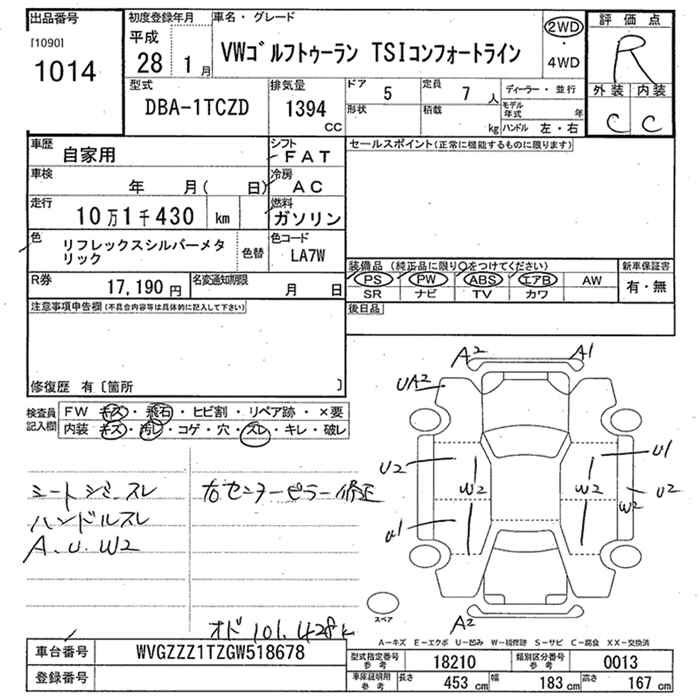 出品番号
[1090]
1014
初度登録年月
平成
28 1月
車名・グレード
VWゴルフトゥーラン TSIコンフォートライン
2WD
・
4WD
評価点
R
外装 内装
C C
型式
DBA-1TCZD
排気量
1394
CC
ドア
5
定員
7 人
形状
積載
kg
ディーラー・並行
モデル年式 年
ハンドル 左・右
車歴
自家用
シフト
FAT
車検
年 月( 日)
冷房
AC
走行
10万1千430 km
燃料
ガソリン
色
リフレックスシルバーメタ
リック
色替
色コード
LA7W
R券
17,190円
名変通知期限
月 日
セールスポイント(正常に機能するものに限ります)
装備品 (純正品に限り○をつけてください)
PS PW ABS エアB AW
SR ナビ TV カワ
新車保証書
有・無
後日品
注意事項申告欄(不具合内容等は具体的に記入して下さい)
修復歴 有〔箇所 〕
検査員
記入欄
FW キズ・飛石・ヒビ割・リペア跡・×要
内装 キズ・汚レ・コゲ・穴・スレ・キレ・破レ
シートシミ.スレ
ハンドルスレ
A.U.W2
右センターピラー修正
オド101.428k
A2
A1
UA2
U2
W2
U1
W2
U1
W2
U2
A2
スペア
A-キズ E-エクボ U-凹み W-補修跡 S-サビ C-腐食 XX-交換済
車台番号
WVGZZZ1TZGW518678
登録番号
型式指定番号
参考
18210
類別区分番号
参考
0013
車庫証明用
参考
長さ
453 cm
幅
183 cm
高さ
167 cm